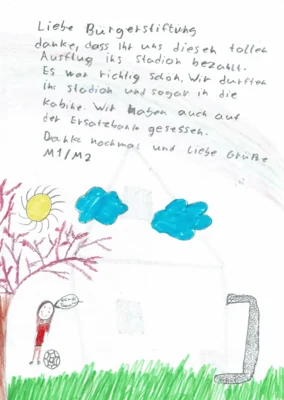 Liebe Bürgerstiftung
danke, dass Ihr uns diesen tollen
Ausflug ins Stadion bezahlt.
Es war richtig schön. Wir durften
ins Stadion und sogar in die
Kabine. Wir haben auch auf
der Ersatzbank gesessen.
Danke nochmal und liebe Grüße
M1/M2